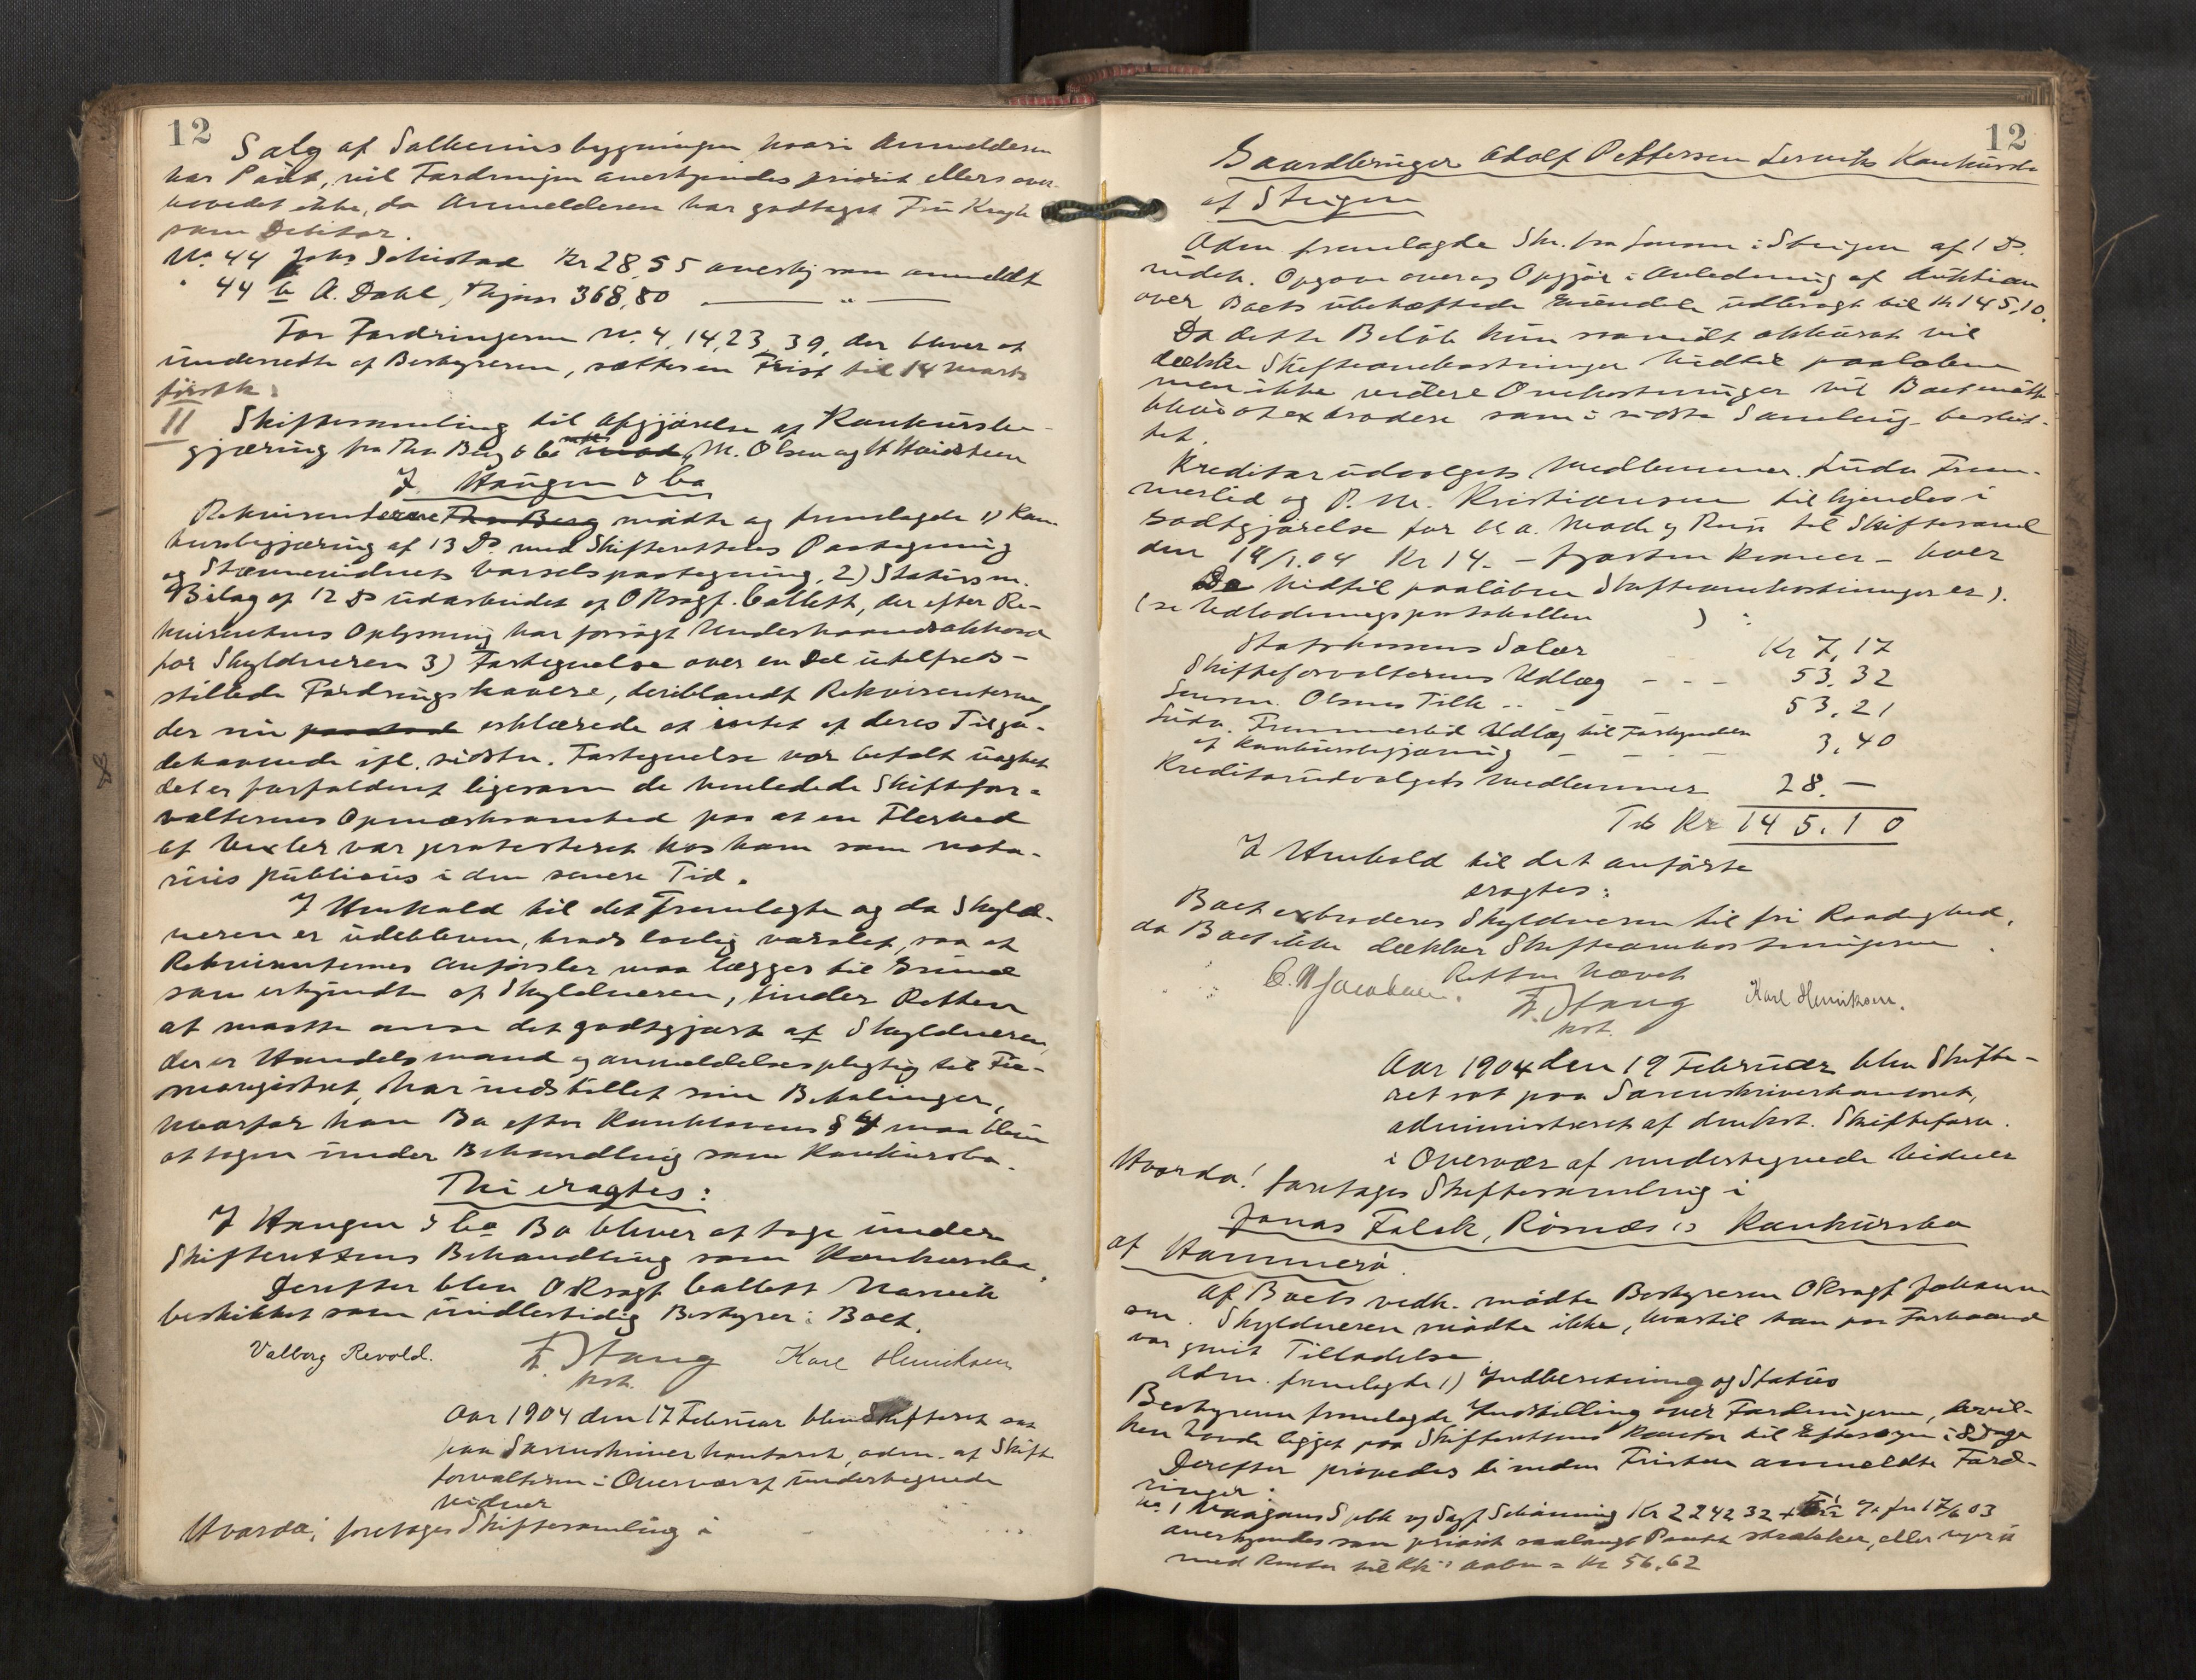 12
Salg af Salteriusbygningen hvori Anmelderen
har Pant, vil Fordringen anerkjendes priorit. ellers over-
hovedet ikke, da Anmelderen har godtaget Fru Krogh
som Debitor.
No 44 Johs Schistad Kr 28,55 anerkj som anmeldt
" 44 b A. Dahl, 368,80 — " —
For Fordringerne No. 4, 14, 23, 39, der bliver at
underrette af Bestyreren, sættes en Frist til 14 Marts
førstk.
II Skiftesamling til Afgjørelse af Konkursbe-
gjæring fra Thu Berg & Co mod M. Olsen og
J. Haugen & Co
Rekvirenterne Thu Berg mødte og fremlagde 1) Kon-
kursbegjæring af 13 Ds. med Skifterettens Paategning
og Stævnevidnets Varselspaategning. 2) Status m.
Bilag af 12 Ds udarbeidet af O Rsagf. Collett, der efter Re-
kvirentens Oplysning har forsøgt Underhaandsakkord
for Skyldneren 3) Fortegnelse over en Del utilfreds-
stillede Fordringshavere, deriblandt Rekvirenterne,
der nu paastod erklærede at intet af deres Tilgo-
dehavende ifl. sidstn. Fortegnelse var betalt uagtet
det er forfaldent ligesom de henledede Skiftefor-
valterens Opmærksomhed paa at en Flerhed
af Vexler var protesteret hos ham som nota-
rius publicus i den senere Tid.
I Henhold til det fremlagte og da Skyld-
neren er udebleven, trods lovlig varslet, saa at
Rekvirenternes Anførsler maa lægges til Grund
som erkjendte af Skyldneren, finder Retten
at maatte anse det godtgjort at Skyldneren,
der er Handelsmand og anmeldelsespligtig til Fir-
maregistret, har indstillet sine Betalinger,
hvorfor hans Bo efter Konklovens § 4 maa blive
at tagen under Behandling som Konkursbo.
Thi eragtes:
J Haugen & Co Bo bliver at tage under
Skifterettens Behandling som Konkursbo.
Derefter blev O Rsagf Collett Narvik
beskikket som midlertidig Bestyrer i Boet.
Valborg Revold. F. Stang Karl Henriksen
kst.
Aar 1904 den 17 Februar blev Skifteret sat
paa Sorenskriverkontoret, adm. af Skifte
forvalteren i Overvær af undertegnede
Vidner
Hvorda! foretages Skiftesamling i
12
Gaardbruger Adolf Pettersen Konkursbo
af Steigen
Adm. fremlagde Skr. fra Lensm. i Steigen af 1 Ds.
vedk. Opgave over og Opgjør i Anledning af Auktion
over Boets ubehæftede Eiendele udbragt til Kr 145,10.
Da dette Beløb kun saavidt akkurat vil
dække Skifteomkostninger hidtil paaløbne
men ikke videre Omkostninger vil Boet maatte
blive at extradere som i sidste Samling beslut-
tet.
Kreditorudvalgets Medlemmer Ludv Frem-
merlid og P. M. Kristiansen tilkjendes i
Godtgjørelse for bl a. Møde og Reise til Skiftesaml
den 14/1.04 Kr 14. – fjorten Kroner – hver
De hidtil paaløbne Skifteomkostninger er
(se Udlodningsprotokollen ) :
Statskassens Salær Kr 7,17
Skifteforvalterens Udlæg - - - 53,32
Lensm. Olsens Tilh - - - 53,21
Ludv. Fremmerlid Udlæg til Forkyndelse
af Konkursbegjæring - - - 3,40
Kreditorudvalgets Medlemmer 28. —
Tils Kr 145.10
I Henhold til det anførte
eragtes:
Boet extraderes Skyldneren til fri Raadighed,
da Boet ikke dækker Skifteomkostningerne.
Retten hævet
C. N Jacobsen. F. Stang Karl Henriksen.
kst.
Aar 1904 den 19 Februar blev Skifte-
ret sat paa Sorenskriverkontoret,
administreret af den kst. Skifteforv.
i Overvær af undertegnede Vidner
Hvorda! foretages Skiftesamling i
Jonas Falck, Rørnæs Konkursbo
af Hammerø.
Af Boets vedk. mødte Bestyreren O Rsagf Johann-
sen. Skyldneren mødte ikke, hvortil han paa Forhaand
var givet Tilladelse
Adm. fremlagde 1) Indberetning og Status
Bestyreren fremlagde Indstilling over Fordringerne, hvil-
ken havde ligget paa Skifterettens Kontor til Eftersyn i 8 Dage
Derefter prøvedes de inden Fristen anmeldte Ford-
ringer:
No 1 Vaagans Spbk v Sagf Schønning Kr 2242 32 + fra 17/6 03
anerkjendes som priorit saalangt Pantet strækker, ellers uprior
med Renter til Kk: aabn = Kr 56.62